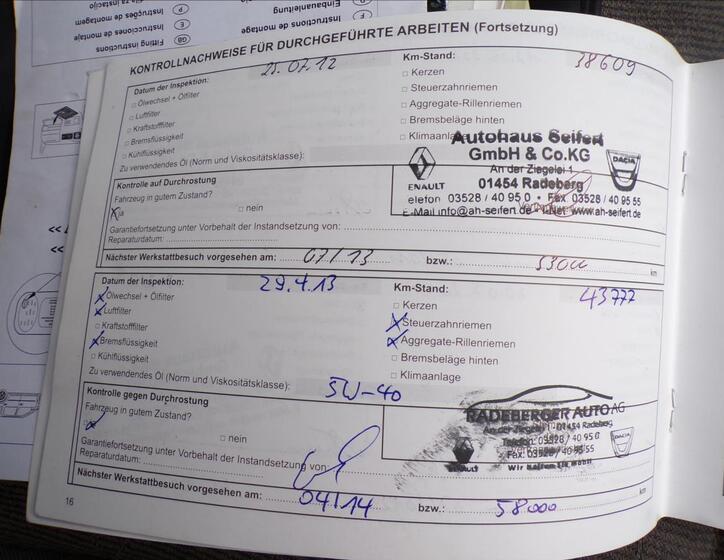 Instruções de montagem
Einbauanleitung
Instrucciones de montaje
Instructions de montage
Fitting instructions
KONTROLLNACHWEISE FÜR DURCHGEFÜHRTE ARBEITEN (Fortsetzung)
Datum der Inspektion: 25.07.12
Km-Stand: 38609
Ölwechsel + Ölfilter
Luftfilter
Kraftstofffilter
Bremsflüssigkeit
Kühlflüssigkeit
Kerzen
Steuerzahnriemen
Aggregate-Rillenriemen
Bremsbeläge hinten
Klimaanlage
Zu verwendendes Öl (Norm und Viskositätsklasse):
Autohaus Seifert
GmbH & Co.KG
An der Ziegelei 1
01454 Radeberg
elefon 03528 / 40 95 0 • Fax 03528 / 40 95 55
E-Mail info@ah-seifert.de • I-Net www.ah-seifert.de
ENAULT
DACIA
Kontrolle auf Durchrostung
Fahrzeug in gutem Zustand?
X ja
nein
Garantiefortsetzung unter Vorbehalt der Instandsetzung von:
Reparaturdatum:
Nächster Werkstattbesuch vorgesehen am: 07/13 bzw.: 53000 km
Datum der Inspektion: 29.4.13
Km-Stand: 43777
X Ölwechsel + Ölfilter
X Luftfilter
Kraftstofffilter
X Bremsflüssigkeit
Kühlflüssigkeit
Kerzen
X Steuerzahnriemen
X Aggregate-Rillenriemen
Bremsbeläge hinten
Klimaanlage
Zu verwendendes Öl (Norm und Viskositätsklasse): 5W-40
Kontrolle gegen Durchrostung
Fahrzeug in gutem Zustand?
X
nein
RADEBERGER AUTO AG
An der Ziegelei 01454 Radeberg
Telefon: 03528 / 40 95 0
Fax: 03528 / 40 95 55
RENAULT
DACIA
Garantiefortsetzung unter Vorbehalt der Instandsetzung von:
Reparaturdatum:
Nächster Werkstattbesuch vorgesehen am: 04/14 bzw.: 58000 km
16